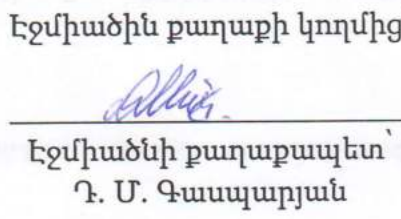 Էջմիածին քաղաքի կողմից
Էջմիածնի քաղաքապետ՝
Դ. Մ. Գասպարյան